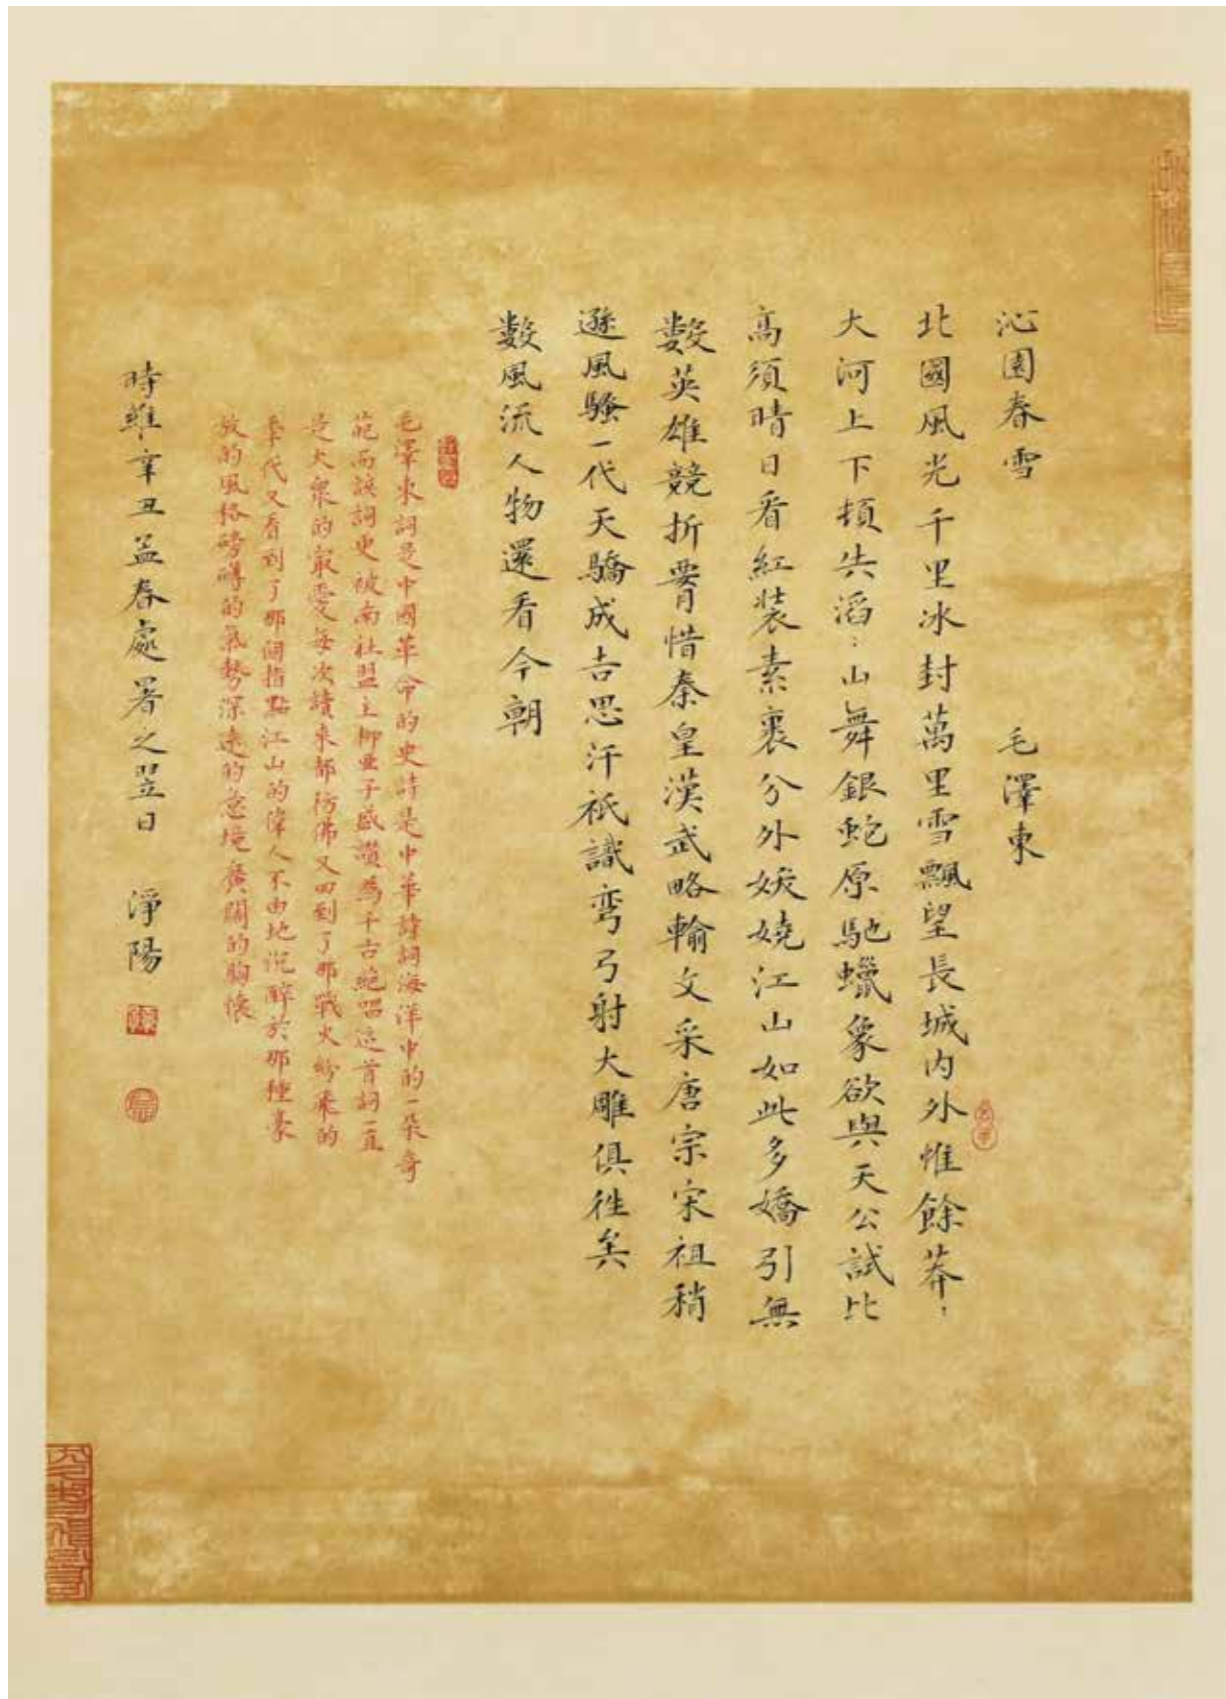 沁園春雪　毛澤東
北國風光千里冰封萬里雪飄望長城内外惟餘莽〻
大河上下頓失滔〻山舞銀蛇原馳蠟象欲與天公試比
高須晴日看紅裝素裹分外妖嬈江山如此多嬌引無
數英雄競折要惜秦皇漢武略輸文采唐宗宋祖稍
遜風騷一代天驕成吉思汗祇識彎弓射大雕俱往矣
數風流人物還看今朝
毛澤東詞是中國革命的史詩是中華詩詞海洋中的一朵奇
葩而該詞更被南社盟主柳亞子盛讚為千古絶唱這首詞一直
是大衆的最愛每次讀來都彷佛又回到了那戰火紛飛的
年代又看到了那個指點江山的偉人不由地沉醉於那種豪
放的風格磅礴的氣勢深遠的意境廣闊的胸懷
時維辛丑孟春處署之翌日　淨陽